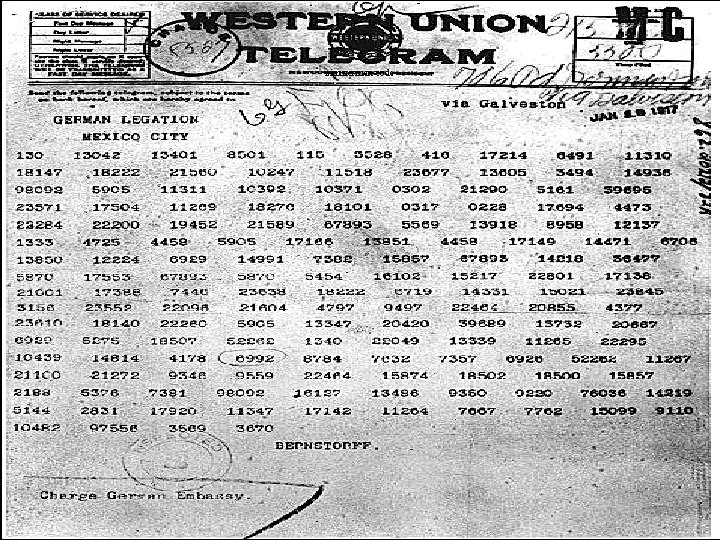 CLASS OF SERVICE DESIRED
Fast Day Message
Day Letter
Night Message
Night Letter
FAST DAY MESSAGE
WESTERN UNION
TELEGRAM
CHARGE
Send the following telegram, subject to the terms
on back hereof, which are hereby agreed to
via Galveston
JAN 1917
GERMAN LEGATION
MEXICO CITY
130 13042 13401 8501 115 3528 416 17214 6491 11310
18147 18222 21560 10247 11518 23677 13605 3494 14936
98092 5905 11311 10392 10371 0302 21290 5161 39695
23571 17504 11269 18276 18101 0317 0228 17694 4473
22284 22200 19452 21589 67893 5569 13918 8958 12137
1333 4725 4458 5905 17166 13851 4458 17149 14471 6706
13850 12224 6929 14991 7382 15857 67893 14218 36477
5870 17553 67893 5870 5454 16102 15217 22801 17138
21001 17388 7446 23638 18222 6719 14331 15021 23845
3156 23552 22096 21604 4797 9497 22464 20855 4377
23610 18140 22260 5905 13347 20420 39689 13732 20667
6929 5275 18507 52262 1340 22049 13339 11265 22295
10439 14814 4178 6992 8784 7632 7357 6926 52262 11267
21100 21272 9346 9559 22464 15874 18502 18500 15857
2188 5376 7381 98092 16127 13486 9350 9220 76036 14219
5144 2831 17920 11347 17142 11264 7667 7762 15099 9110
10482 97556 3569 3670
BERNSTORFF.
Charge German Embassy.